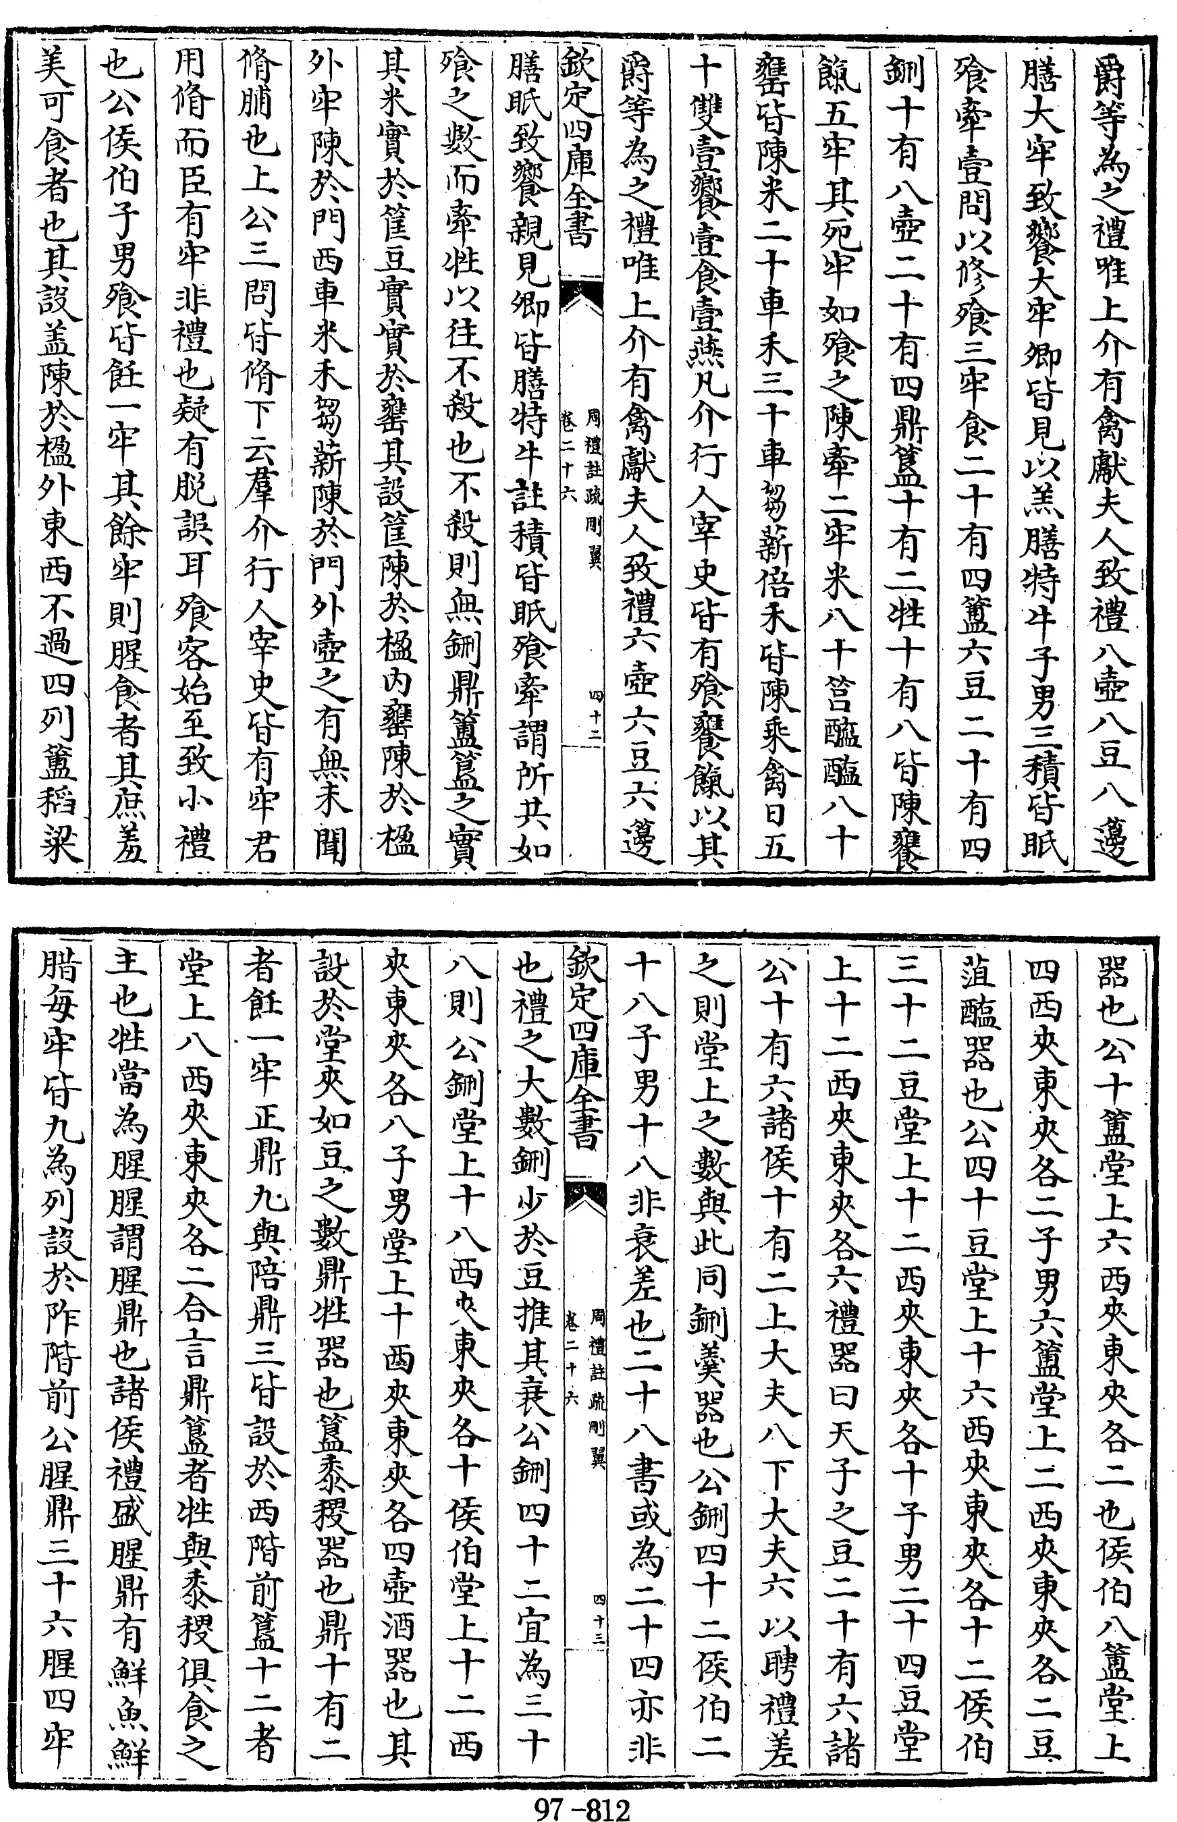 爵等為之禮唯上介有禽獻夫人致禮八壺八豆八籩
膳大牢致饗大牢卿皆見以羔膳特牛子男三積皆眡
飱牽壹問以修飱三牢食二十有四簠六豆二十有四
鉶十有八壺二十有四鼎簋十有二牲十有八皆陳饔
餼五牢其死牢如飱之陳牽二牢米八十筥醯醢八十
罋皆陳米二十車禾三十車芻薪倍禾皆陳乘禽日五
十雙壹饗壹食壹燕凡介行人宰史皆有飱饔餼以其
爵等為之禮唯上介有禽獻夫人致禮六壺六豆六籩
欽定四庫全書
周禮註疏刪翼
卷二十六
四十二
膳眡致饗親見卿皆膳特牛註積皆眡飱牽謂所共如
飱之數而牽牲以往不殺也不殺則無鉶鼎簠簋之實
其米實於筐豆實實於罋其設筐陳於楹內罋陳於楹
外牢陳於門西車米禾芻薪陳於門外壺之有無未聞
脩脯也上公三問皆脩下云羣介行人宰史皆有牢君
用脩而臣有牢非禮也疑有脫誤耳飱客始至致小禮
也公侯伯子男飱皆飪一牢其餘牢則腥食者其庶羞
美可食者也其設盖陳於楹外東西不過四列簠稻粱
器也公十簠堂上六西夾東夾各二也侯伯八簠堂上
四西夾東夾各二子男六簠堂上二西夾東夾各二豆
菹醢器也公四十豆堂上十六西夾東夾各十二侯伯
三十二豆堂上十二西夾東夾各十子男二十四豆堂
上十二西夾東夾各六禮器曰天子之豆二十有六諸
公十有六諸侯十有二上大夫八下大夫六以聘禮差
之則堂上之數與此同鉶羹器也公鉶四十二侯伯二
十八子男十八非衰差也二十八書或為二十四亦非
欽定四庫全書
周禮註疏刪翼
卷二十六
四十三
也禮之大數鉶少於豆推其衰公鉶四十二宜為三十
八則公鉶堂上十八西夾東夾各十侯伯堂上十二西
夾東夾各八子男堂上十西夾東夾各四壺酒器也其
設於堂夾如豆之數鼎牲器也簋黍稷器也鼎十有二
者飪一牢正鼎九與陪鼎三皆設於西階前簋十二者
堂上八西夾東夾各二合言鼎簋者牲與黍稷俱食之
主也牲當為腥腥謂腥鼎也諸侯禮盛腥鼎有鮮魚鮮
腊每牢皆九為列設於阼階前公腥鼎三十六腥四牢
97-812